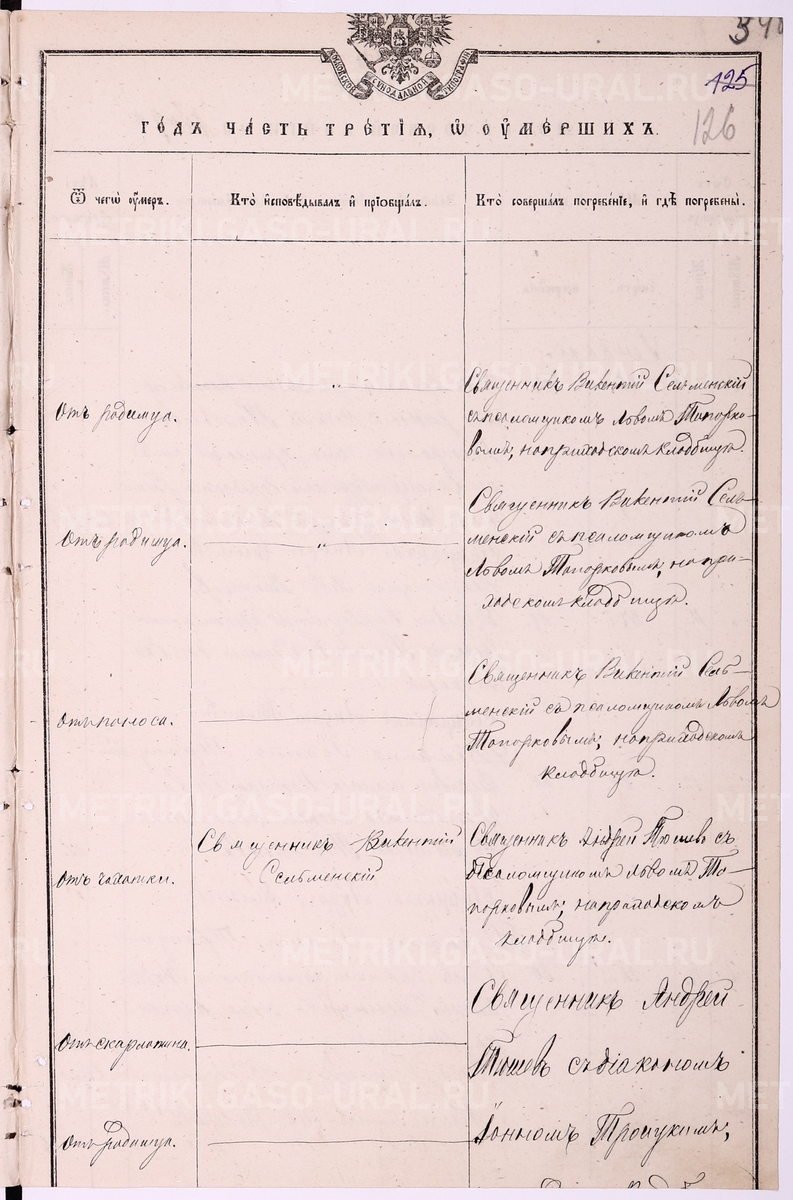 125
126
МОСКОВСКОЙ СѴНОДАЛЬНОЙ ТИПОГРАФІИ
METRIKI.GASO-URAL.RU
го́дъ ча́сть тре́тїѧ, ѡ҆ ᲂу҆ме́ршихъ.
Ѿ чегѡ̀ ᲂу҆́меръ.
Кто̀ и҆сповѣ́дывалъ и҆ прїѻбща́лъ.
Кто̀ соверша́лъ погребе́нїе, и҆ гдѣ̀ погребены̀.
Отъ родимца.
"
Священникъ Викентій Сельменскій
съ псаломщикомъ Львомъ Топорко-
вымъ, на приходскомъ кладбищѣ.
Отъ родимца.
"
Священникъ Викентій Сель-
менскій съ псаломщикомъ
Львомъ Топорковымъ, на при-
ходскомъ кладбищѣ.
Отъ поноса.
Священникъ Викентій Сель-
менскій съ псаломщикомъ Львомъ
Топорковымъ, на приходскомъ
кладбищѣ.
Отъ чахотки.
Священникъ Викентій
Сельменскій
Священникъ Андрей Тюшевъ съ
псаломщикомъ Львомъ То-
порковымъ, на приходскомъ
кладбищѣ.
Отъ скарлатина.
Священникъ Андрей
Тюшевъ съ діакономъ
Отъ родимца.
Іоанномъ Троицкимъ,